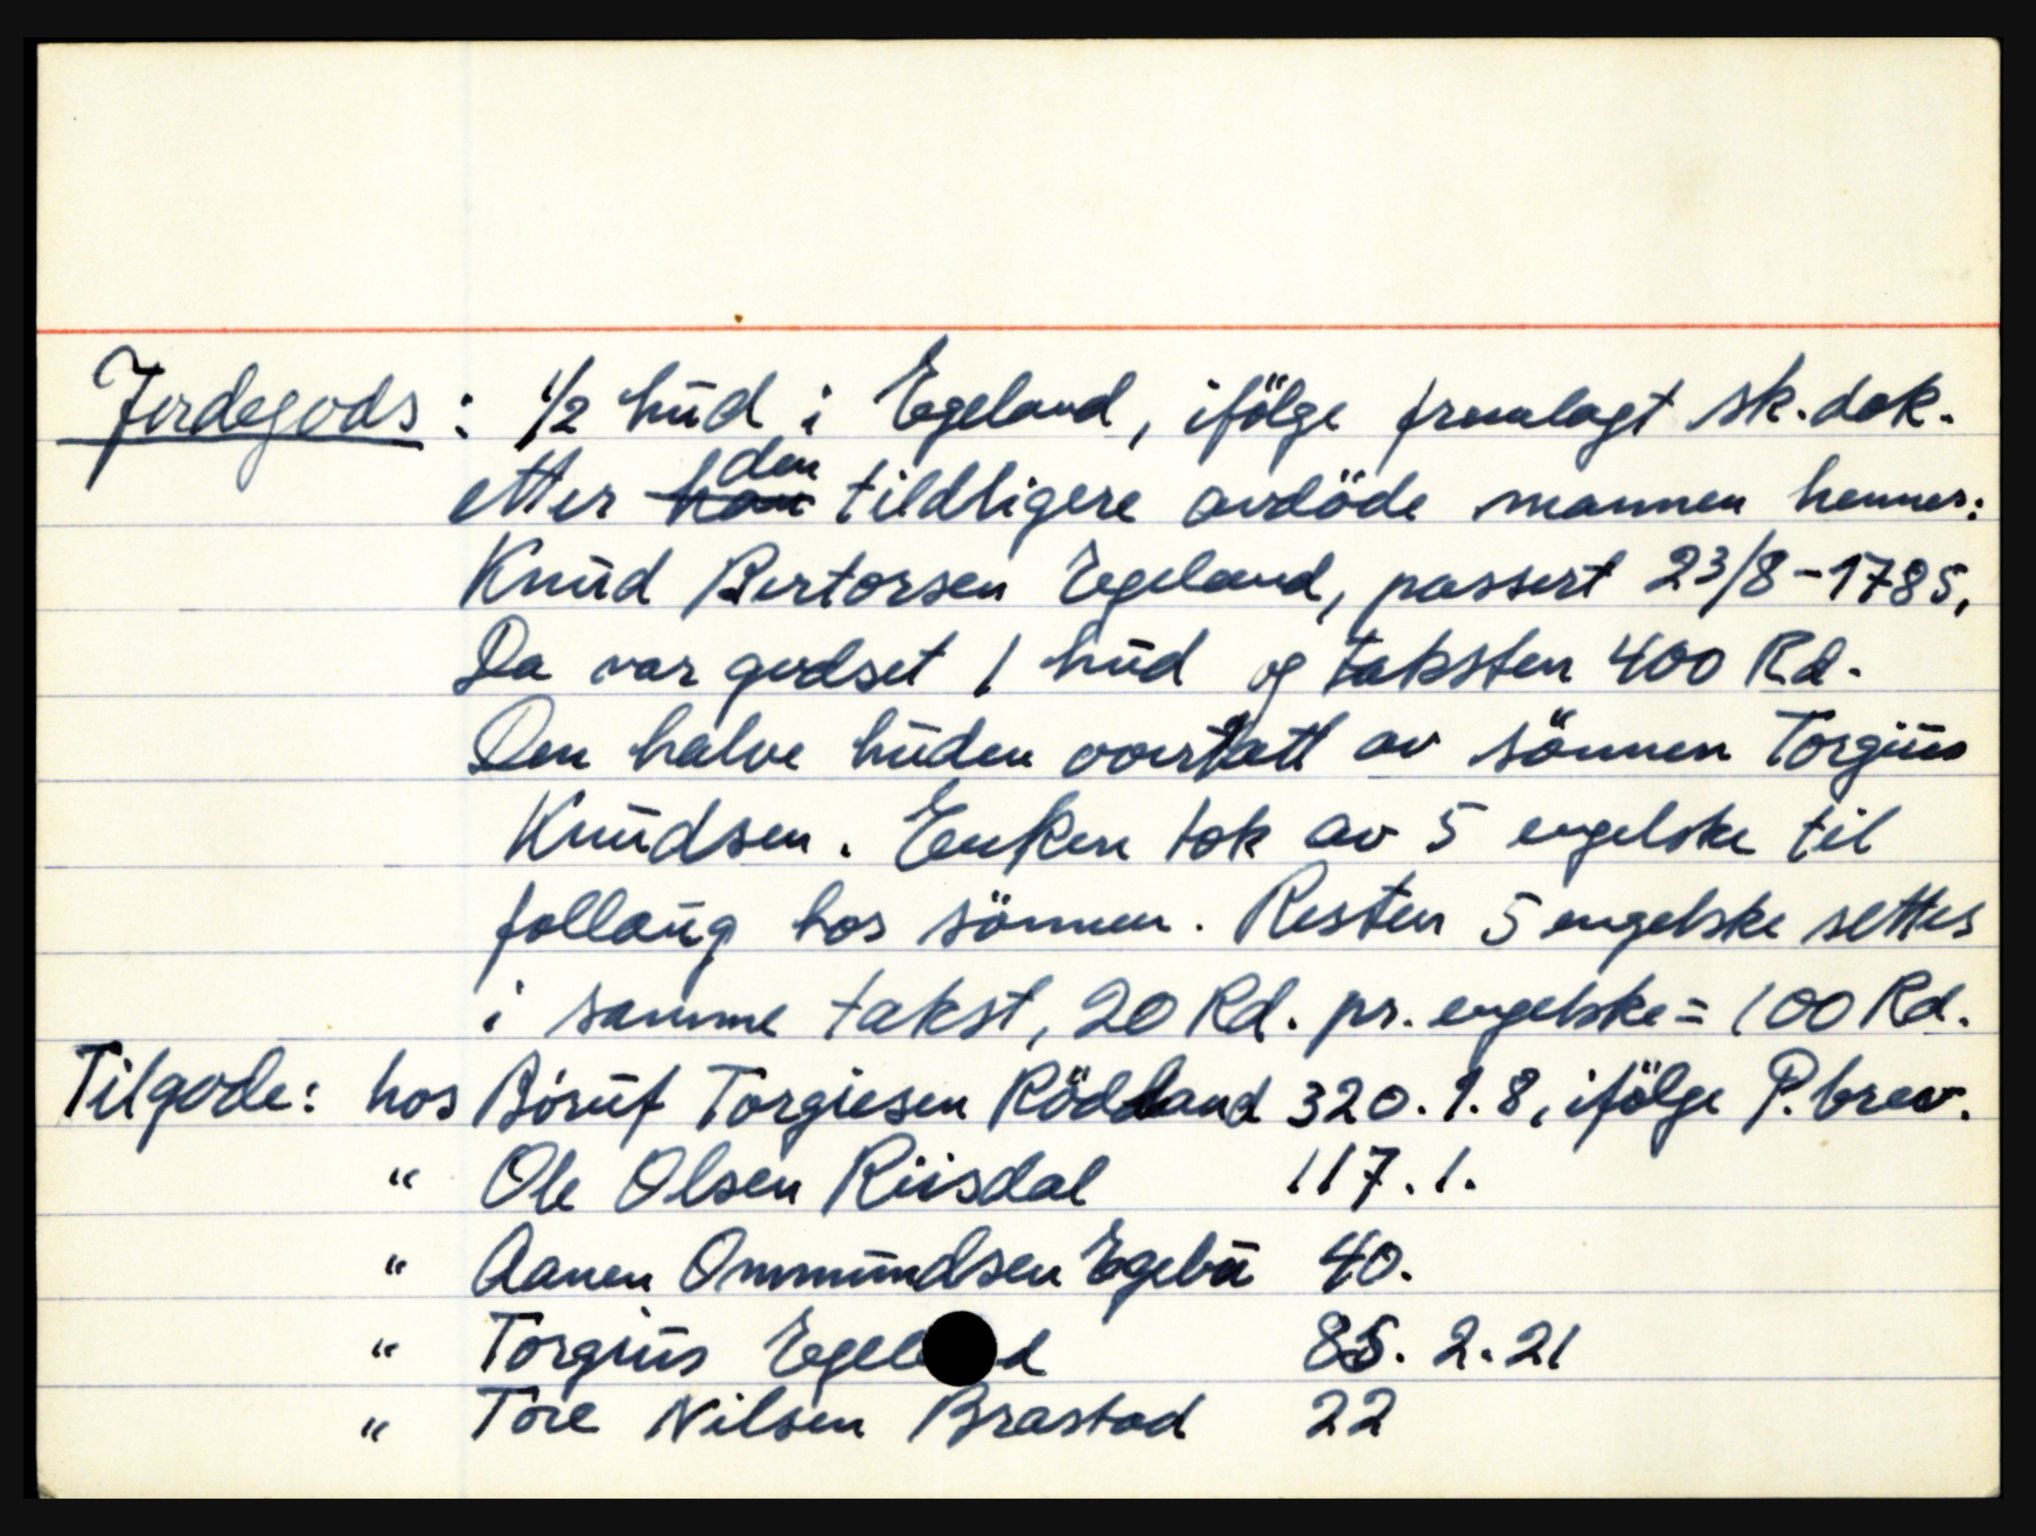 Jordegods: 1/2 hud i Egeland, ifölge fremlagt sk.dok.
etter den tildligere avdöde mannen hennes:
Knud Bertorsen Egeland, passert 23/8-1785,
Da var godset 1 hud og taksten 400 Rd.
Den halve huden overtatt av sönnen Torgius
Knudsen. Enken tok av 5 engelske til
follaug hos sönnen. Resten 5 engelske settes
i samme takst, 20 Rd. pr. engelske = 100 Rd.
Tilgode: hos Böruf Torgiesen Rödland 320.1.8, ifölge P.brev.
" Ole Olsen Riisdal 117.1.
" Aanen Ommundsen Egebu 40.
" Torgius Egeland 85.2.21
" Tore Nilsen Brastad 22